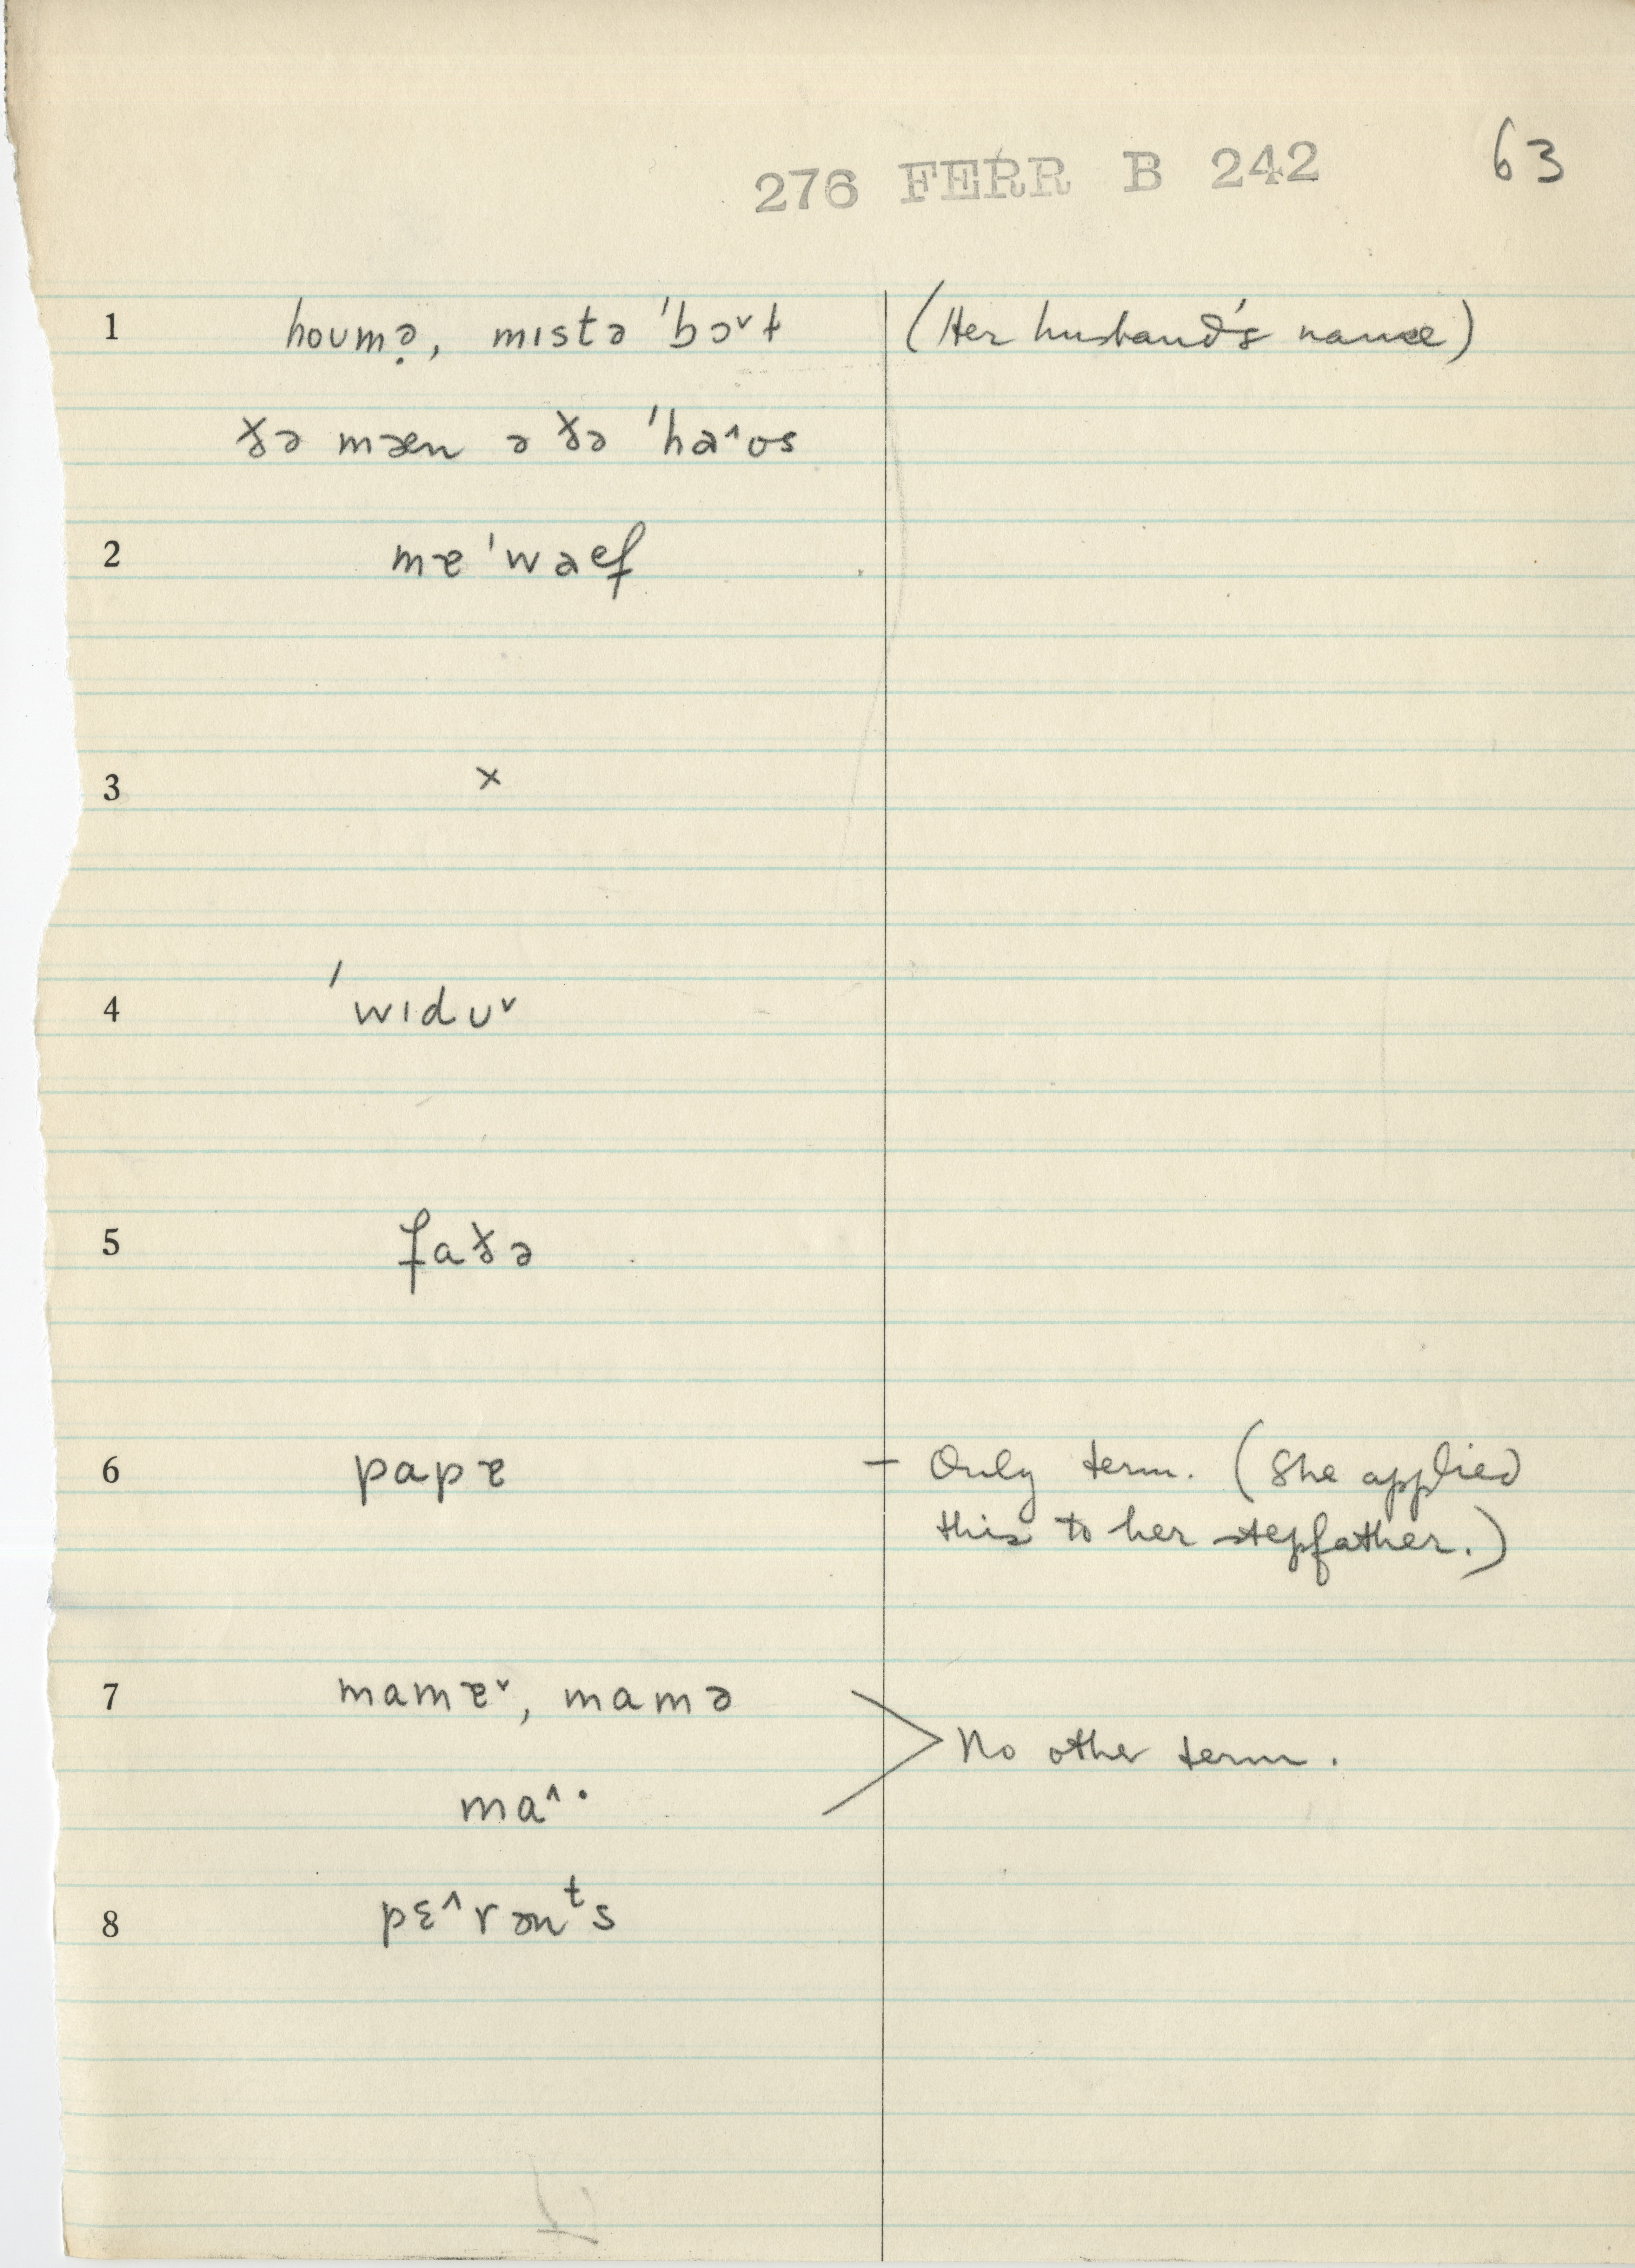 276 FERR B 242 63
1 hoʊmə̣, mɪstə ˈbɔ˅t (Her husband's name)
ðə mæn ə ðə ˈha˄ʊs
2 mɐ ˈwaef
3 ×
4 ˈwɪdʊ˅
5 faðə
6 papɐ – Only term. (She applied
this to her stepfather.)
7 mamɐ˅, mamə
No other term.
ma˄·
8 pɛ˄rənᵗs